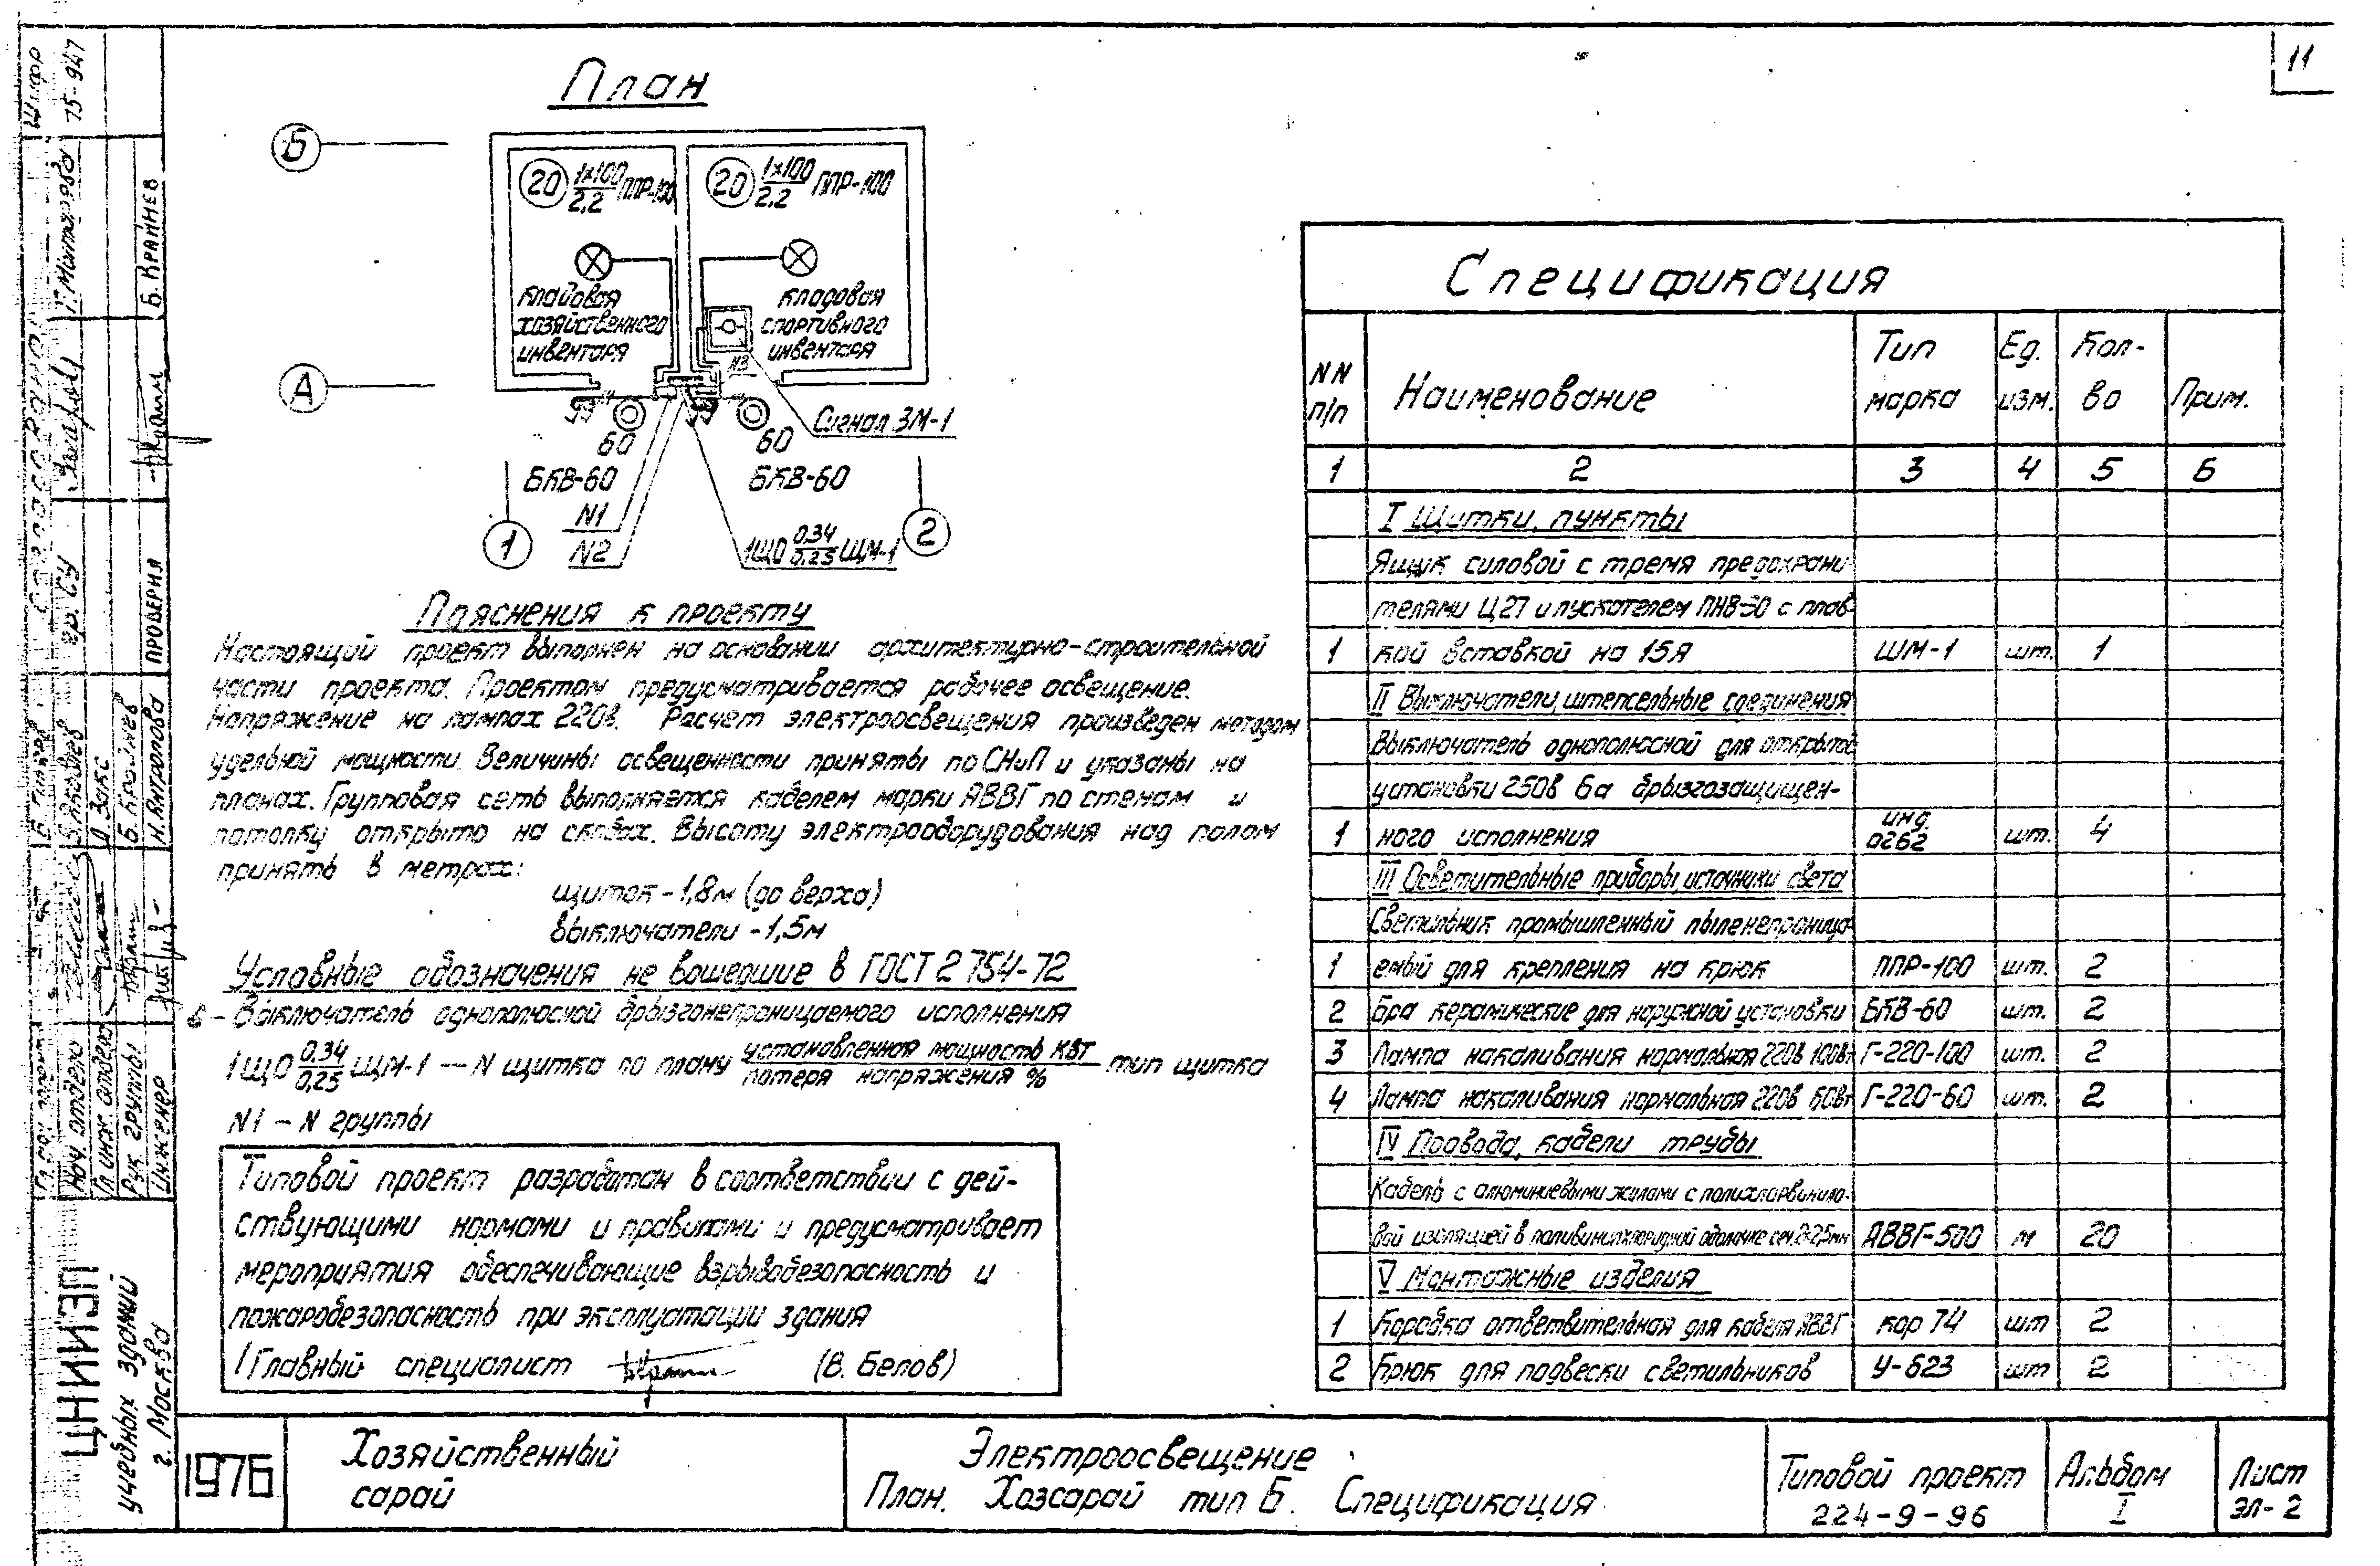 11
План
Б
А
20 1х100 / 2,2 ППР-100
20 1х100 / 2,2 ППР-100
кладовая
хозяйственного
инвентаря
кладовая
спортивного
инвентаря
Сигнал ЗМ-1
60
БКВ-60
60
БКВ-60
N1
N2
N3
1ЩО 0,34 / 0,25 ЩМ-1
1
2
Пояснения к проекту
Настоящий проект выполнен на основании архитектурно-строительной
части проекта. Проектом предусматривается рабочее освещение.
Напряжение на лампах 220в. Расчет электроосвещения произведен методом
удельной мощности. Величины освещенности приняты по СНиП и указаны на
планах. Групповая сеть выполняется кабелем марки АВВГ по стенам и
потолку открыто на скобах. Высоту электрооборудования над полом
принять в метрах:
щиток - 1,8м (до верха)
выключатели - 1,5м
Условные обозначения не вошедшие в ГОСТ 2 754-72
- Выключатель однополюсной брызгонепроницаемого исполнения
1ЩО 0,34 / 0,25 ЩМ-1 — N щитка по плану установленная мощность кВт / потеря напряжения % тип щитка
N1 - N группы
Типовой проект разработан в соответствии с дей-
ствующими нормами и правилами и предусматривает
мероприятия обеспечивающие взрывобезопасность и
пожаробезопасность при эксплуатации здания
Главный специалист (В. Белов)
Спецификация
NN п/п Наименование Тип марка Ед. изм. Кол-во Прим.
1 2 3 4 5 6
I Щитки, пункты
Ящик силовой с тремя предохрани-
телями Ц27 и пускателем ПНВ-30 с плав-
1 кой вставкой на 15А ЩМ-1 шт. 1
II Выключатели, штепсельные соединения
Выключатель однополюсной для открытой
установки 250в 6а брызгозащищен-
1 ного исполнения инд. 0262 шт. 4
III Осветительные приборы, источники света
Светильник промышленный пыленепроница-
1 емый для крепления на крюк ППР-100 шт. 2
2 Бра керамические для наружной установки БКВ-60 шт. 2
3 Лампа накаливания нормальная 220в 100Вт Г-220-100 шт. 2
4 Лампа накаливания нормальная 220в 60Вт Г-220-60 шт. 2
IV Провода, кабели трубы
Кабель с алюминиевыми жилами с полихлорвинило-
вой изоляцией в поливинилхлоридной оболочке сеч. 2х2,5мм АВВГ-500 м 20
V Монтажные изделия
1 Коробка ответвительная для кабеля АВВГ кор 74 шт 2
2 Крюк для подвески светильников У-623 шт 2
Шифр 75-947
Т. Монтахова
Б. Крайнев
Гер. СУ
ПРОВЕРИЛ
Д. Закс
Б. Крайнев
Н. Антропова
Нач. отдела
Гл. инж. отдела
Рук. группы
Инженер
ЦНИИЭП
учебных зданий
г. Москва
1976
Хозяйственный
сарай
Электроосвещение
План. Хозсарай тип Б. Спецификация
Типовой проект
224-9-96
Альбом
I
Лист
ЭЛ-2